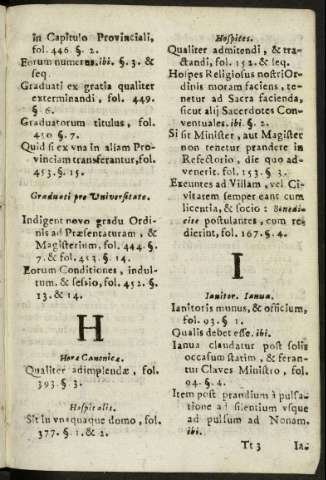 in Capitulo Provinciali,
fol. 446 §. 2.
Eorum numerus. ibi. §. 3. &
seq.
Graduati ex gratia qualiter
exterminandi, fol. 449.
§. 6.
Graduatorum titulus, fol.
450 §. 7.
Quid si ex vna in aliam Pro-
vinciam transferantur, fol.
453. §. 15.
Graduati pro Universitate.
Indigent novo gradu Ordi-
nis ad Præsentaturam, &
Magisterium, fol. 444. §.
7. & fol. 453. §. 14.
Eorum Conditiones, indul-
tum, & sessio, fol. 452. §.
13. & 14.
H
Horæ Canonicæ.
Qualiter adimplendæ, fol.
393. §. 3.
Hospitalis.
Sit in vnaquaque domo, fol.
377. §. 1. & 2.
Hospites.
Qualiter admitendi, & tra-
ctandi, fol. 152. & seq.
Hospes Religiosus nostri Or-
dinis moram faciens, te-
netur ad Sacra facienda,
sicut alij Sacerdotes Con-
ventuales. ibi. §. 2.
Si sit Minister, aut Magister
non tenetur prandere in
Refectorio, die quo ad-
venerit. fol. 153. §. 3.
Exeuntes ad Villam, vel Ci-
vitatem semper eant cum
licentia, & socio: Benedi-
cite postulantes, cum re-
dierint, fol. 167. §. 4.
I
Ianitor. Ianua.
Ianitoris munus, & officium,
fol. 93. §. 1.
Qualis debet esse. ibi.
Ianua claudatur post solis
occasum statim, & feran-
tur Claves Ministro, fol.
94. §. 4.
Item post prandium à pulsa-
tione ad silentium vsque
ad pulsum ad Nonam,
ibi.
Tt 3
Ia-